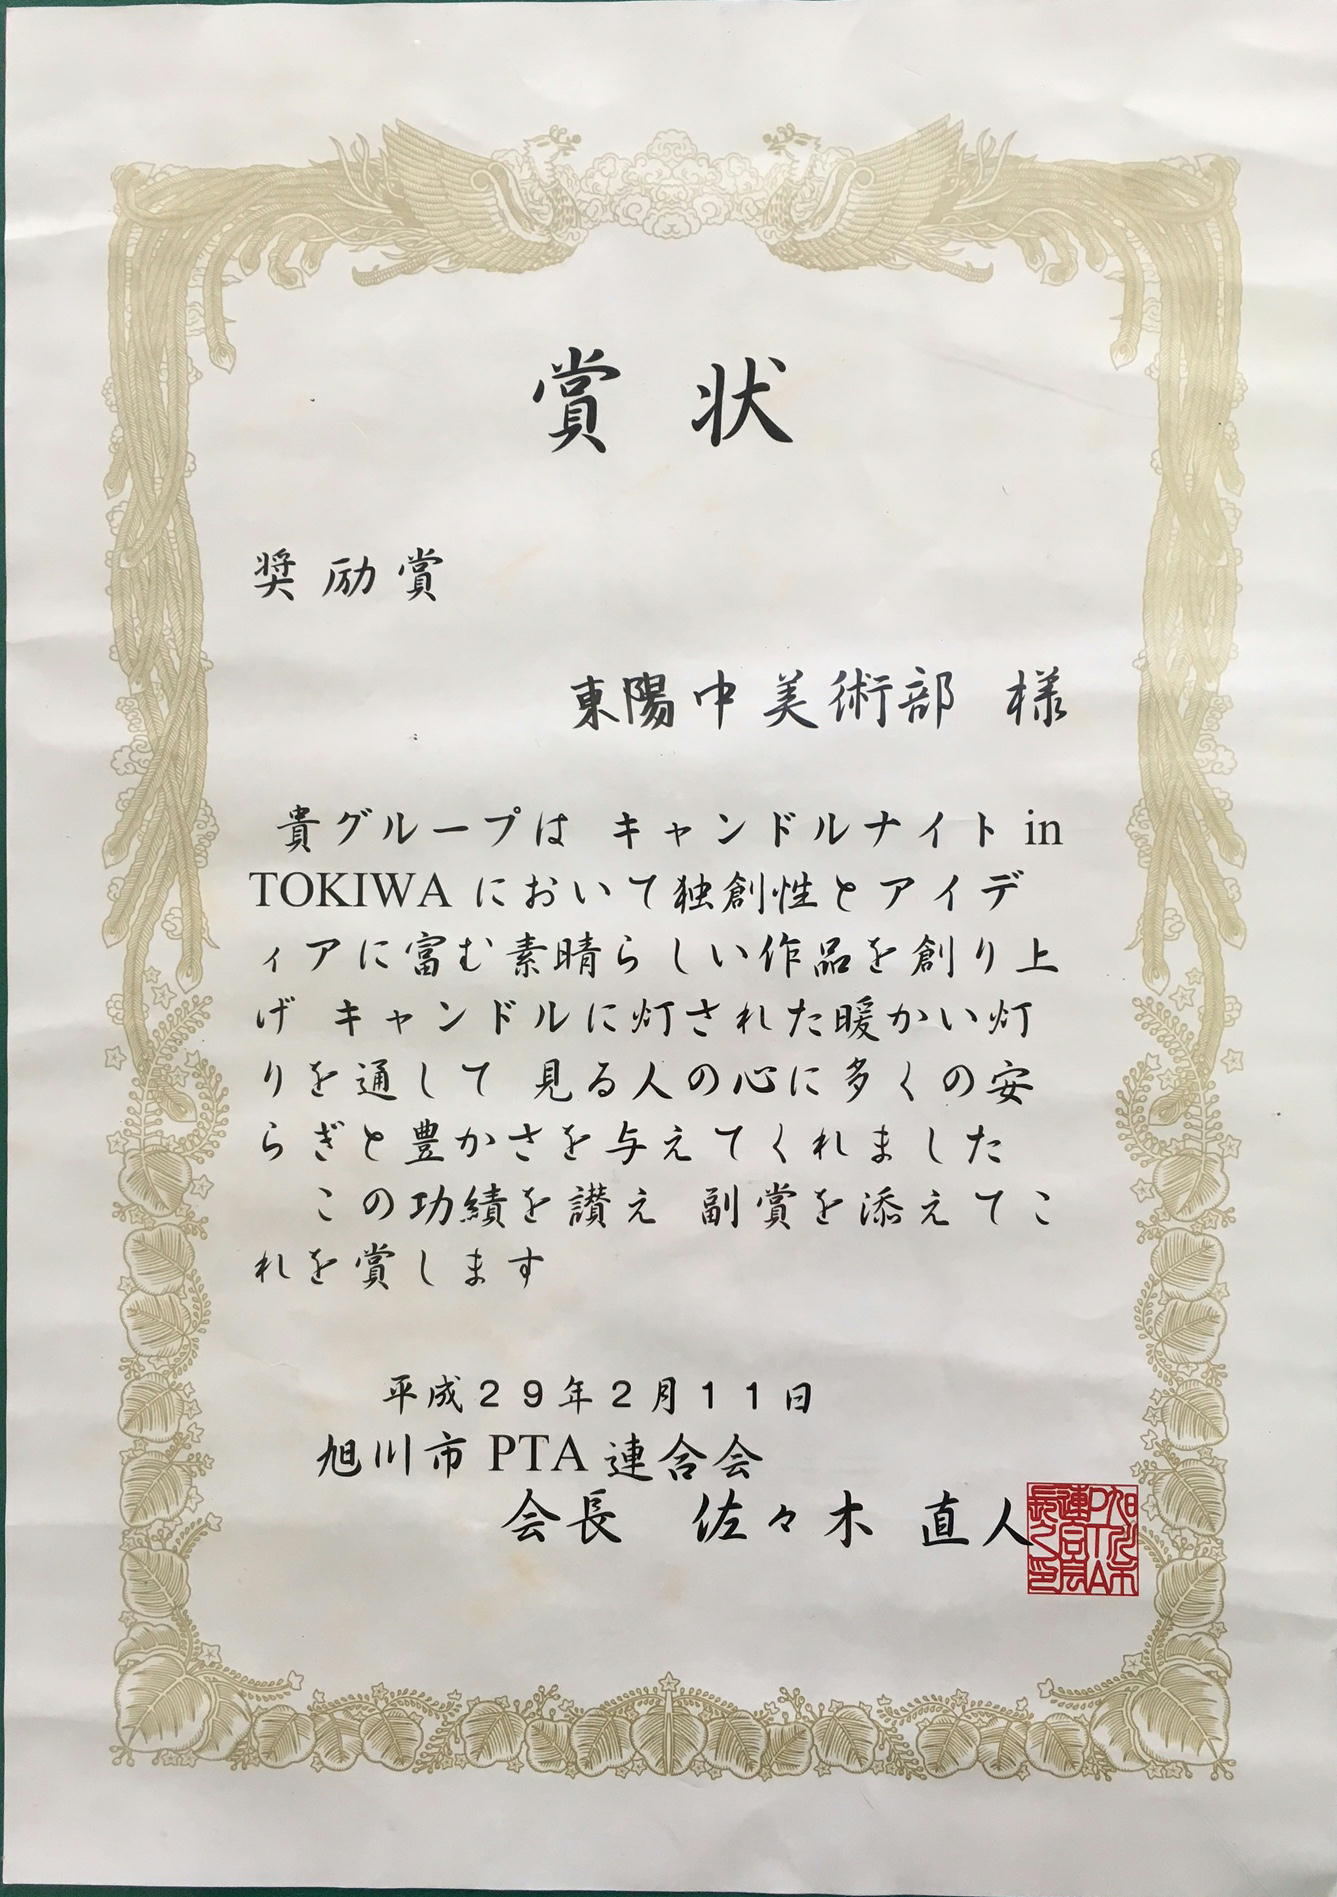 賞状
奨励賞
東陽中美術部 様
貴グループは キャンドルナイト in
TOKIWA において独創性とアイデ
ィアに富む素晴らしい作品を創り上
げ キャンドルに灯された暖かい灯
りを通して 見る人の心に多くの安
らぎと豊かさを与えてくれました
この功績を讃え 副賞を添えてこ
れを賞します
平成２９年２月１１日
旭川市 PTA 連合会
会長 佐々木 直人
旭川市
PTA
連合会
長之印